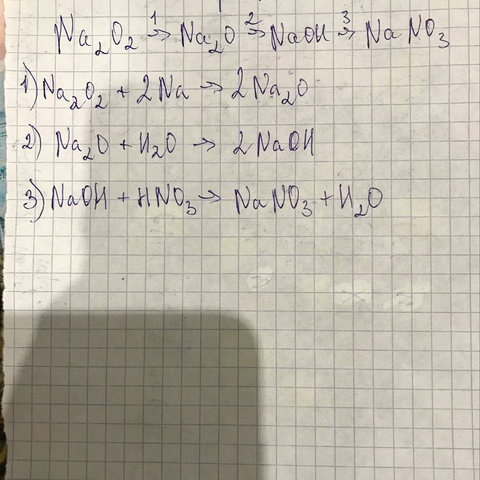 Na₂O₂ →¹ Na₂O →² NaOH →³ NaNO₃
1) Na₂O₂ + 2Na → 2Na₂O
2) Na₂O + H₂O → 2NaOH
3) NaOH + HNO₃ → NaNO₃ + H₂O